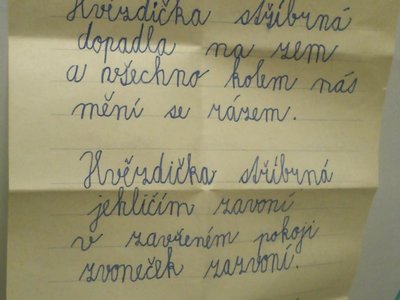 Hvězdička stříbrná
dopadla na zem
a všechno kolem nás
mění se rázem.
Hvězdička stříbrná
jehličím zavoní
v zavřeném pokoji
zvoneček zazvoní.